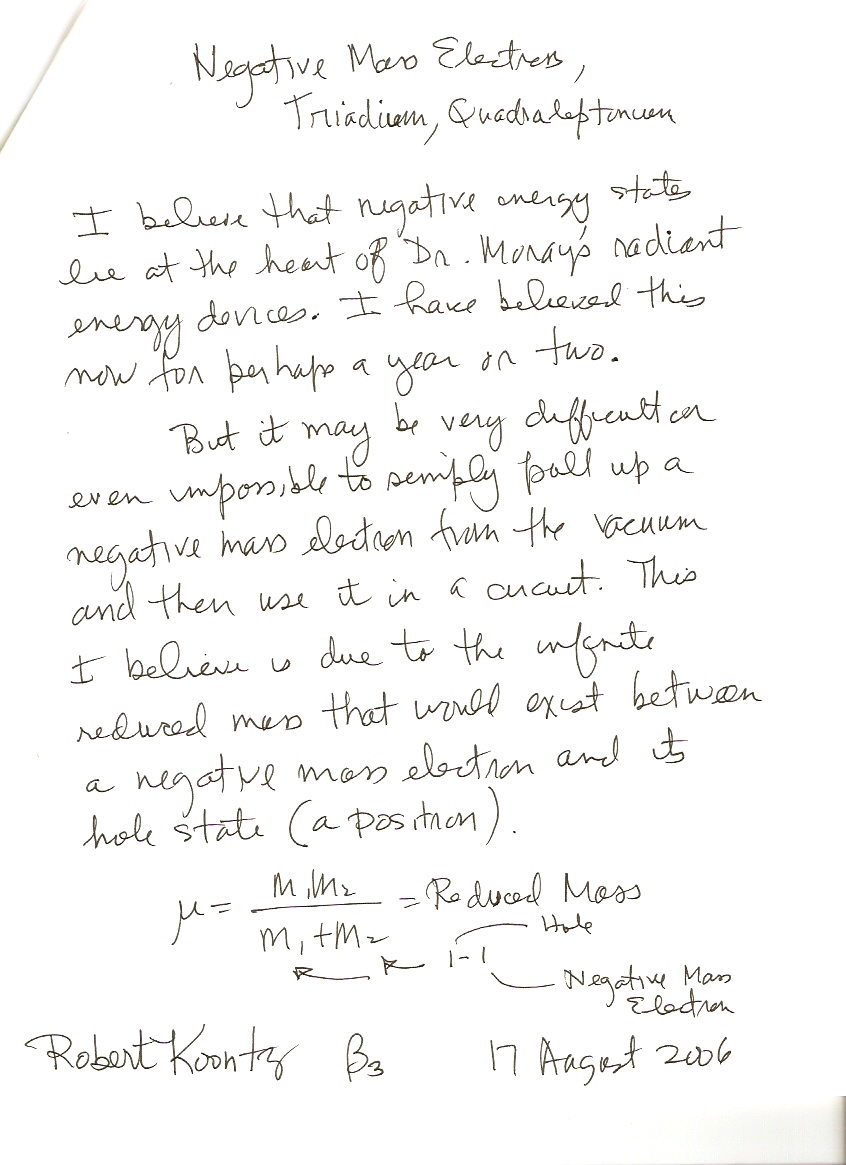 Negative Mass Electrons,
Triadium, Quadraleptonium
I believe that negative energy states
lie at the heart of Dr. Moray's radiant
energy devices. I have believed this
now for perhaps a year or two.
But it may be very difficult or
even impossible to simply pull up a
negative mass electron from the vacuum
and then use it in a circuit. This
I believe is due to the infinite
reduced mass that would exist between
a negative mass electron and its
hole state (a positron).
μ = m₁m₂ / m₁+m₂ = Reduced Mass
1-1 Hole
Negative Mass
Electron
Robert Koontz β₃ 17 August 2006